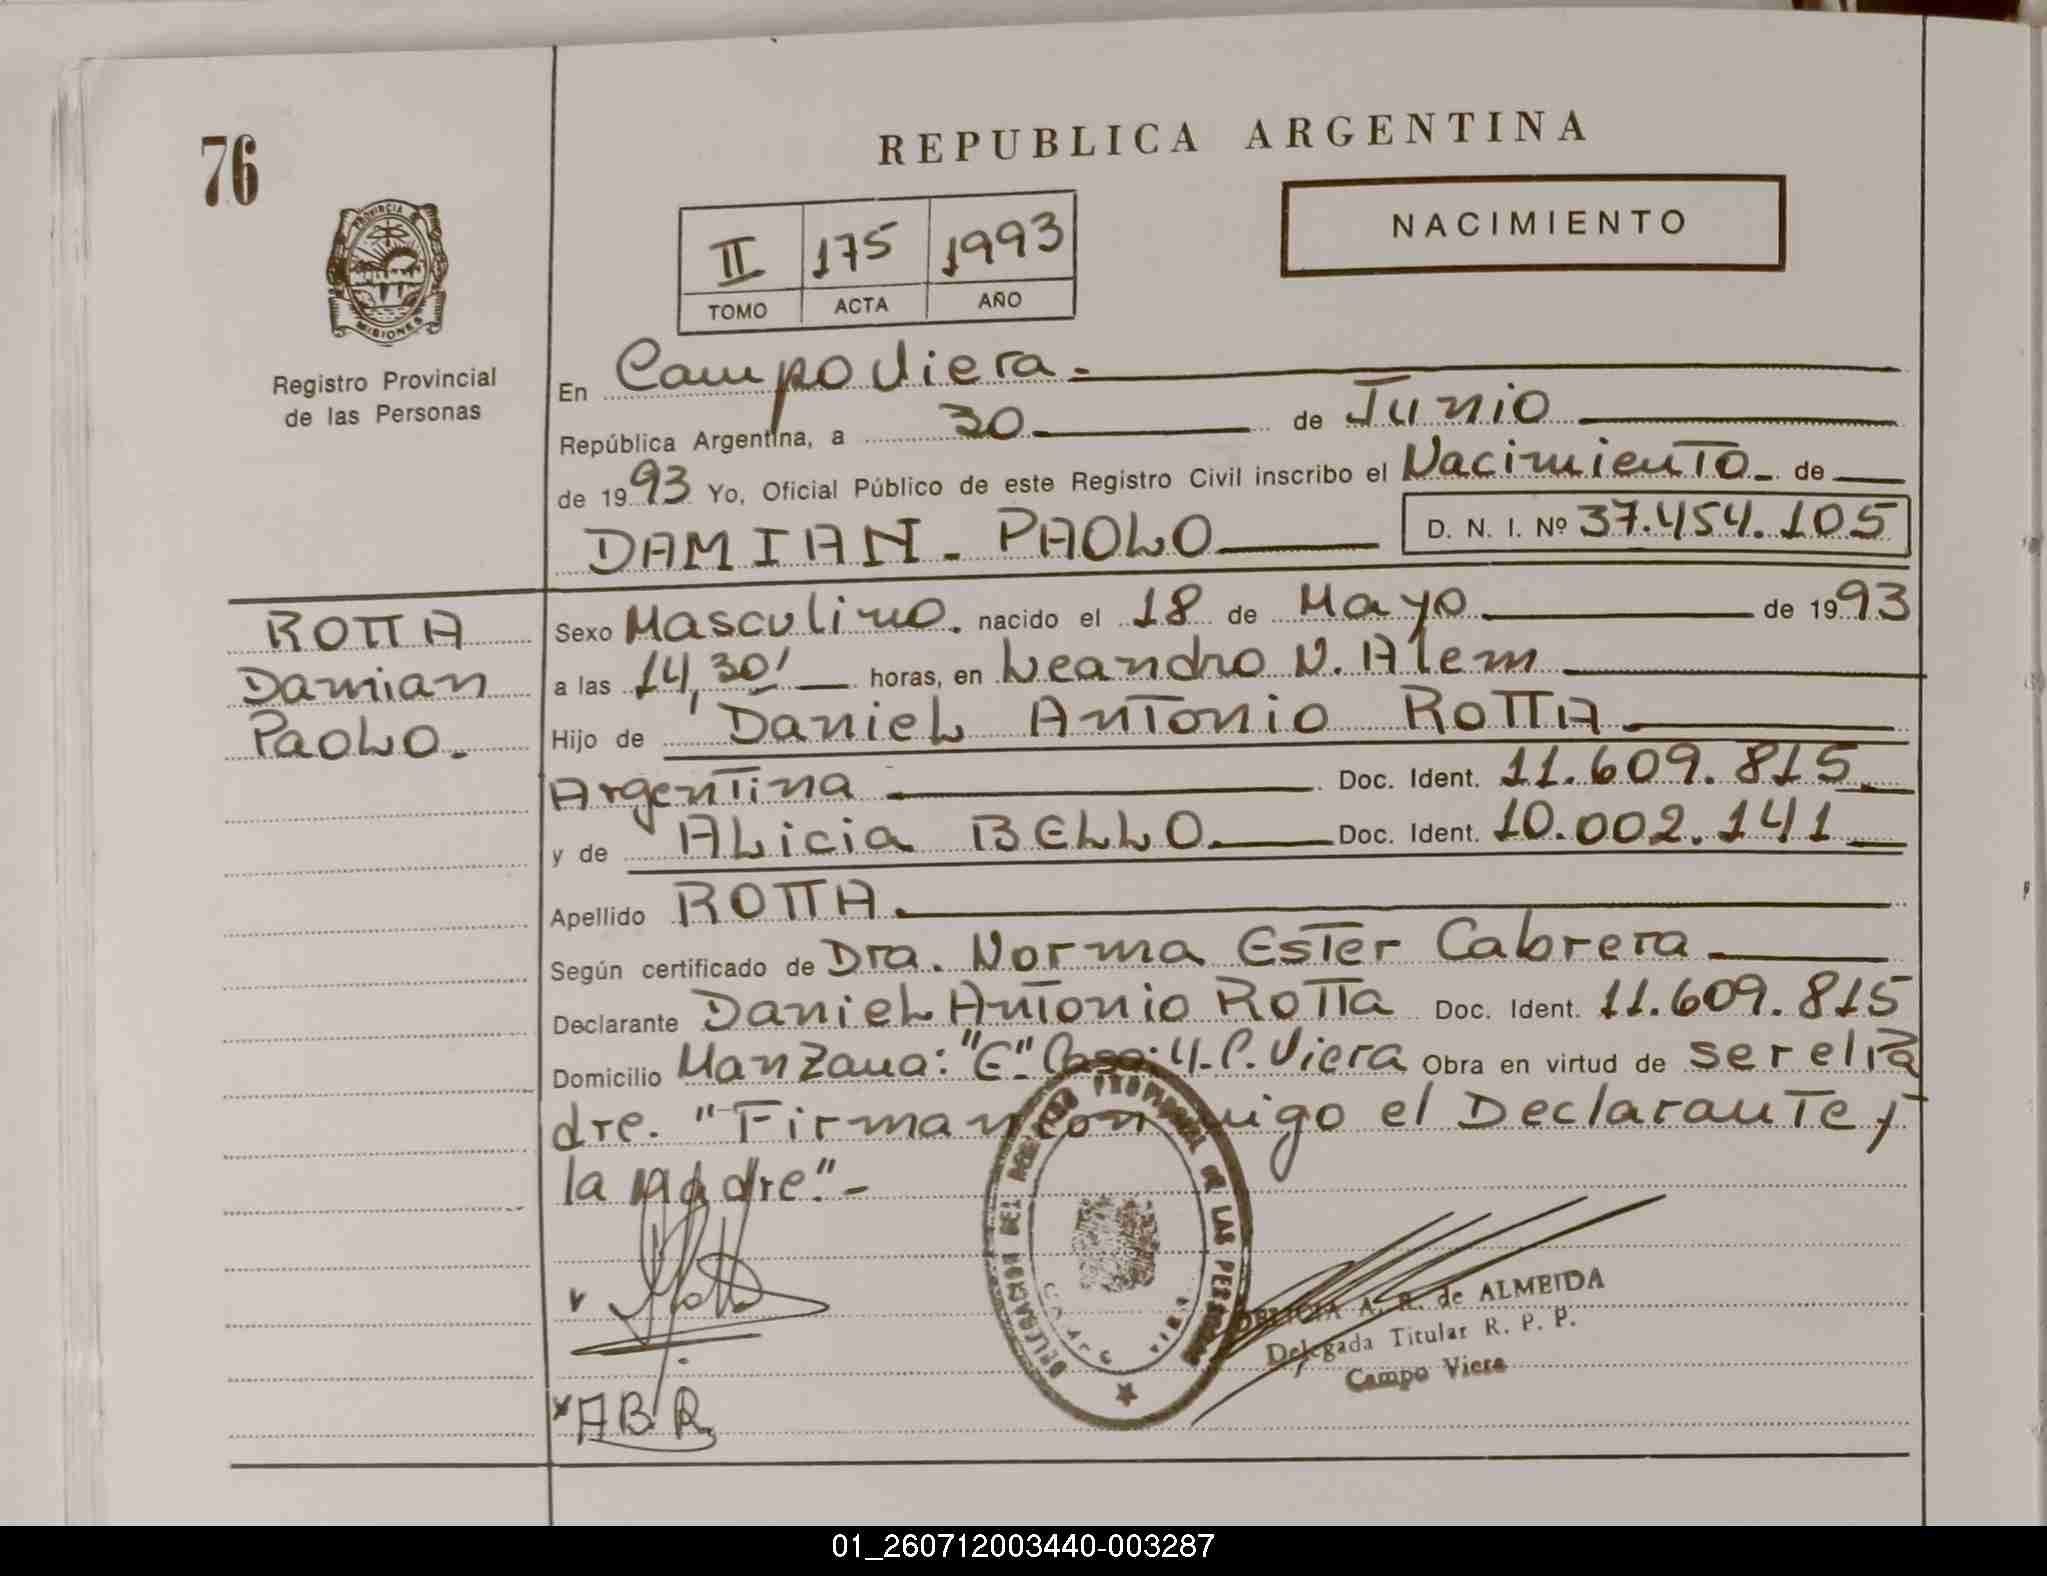 76
REPUBLICA ARGENTINA
NACIMIENTO
II 175 1993
TOMO ACTA AÑO
PROVINCIA DE
MISIONES
Registro Provincial
de las Personas
En Campo Viera.
República Argentina, a 30 de Junio
de 1993 Yo, Oficial Público de este Registro Civil inscribo el Nacimiento de
DAMIAN - PAOLO D. N. I. Nº 37.454.105
ROTTA
Damian
Paolo.
Sexo Masculino. nacido el 18 de Mayo de 1993
a las 14,30' horas, en Leandro N. Alem
Hijo de Daniel Antonio ROTTA
Argentina Doc. Ident. 11.609.815
y de ALicia BELLO. Doc. Ident. 10.002.141
Apellido ROTTA.
Según certificado de Dra. Norma Ester Cabrera
Declarante Daniel Antonio Rotta Doc. Ident. 11.609.815
Domicilio Manzana: "E". Casa: 4-C. Viera Obra en virtud de ser el Pa
dre. "Firman conmigo el Declarante y
la madre".-
DELEGACION DEL REGISTRO PROVINCIAL DE LAS PERSONAS
A. R. de ALMEIDA
Delegada Titular R. P. P.
Campo Viera
ABR
01_260712003440-003287